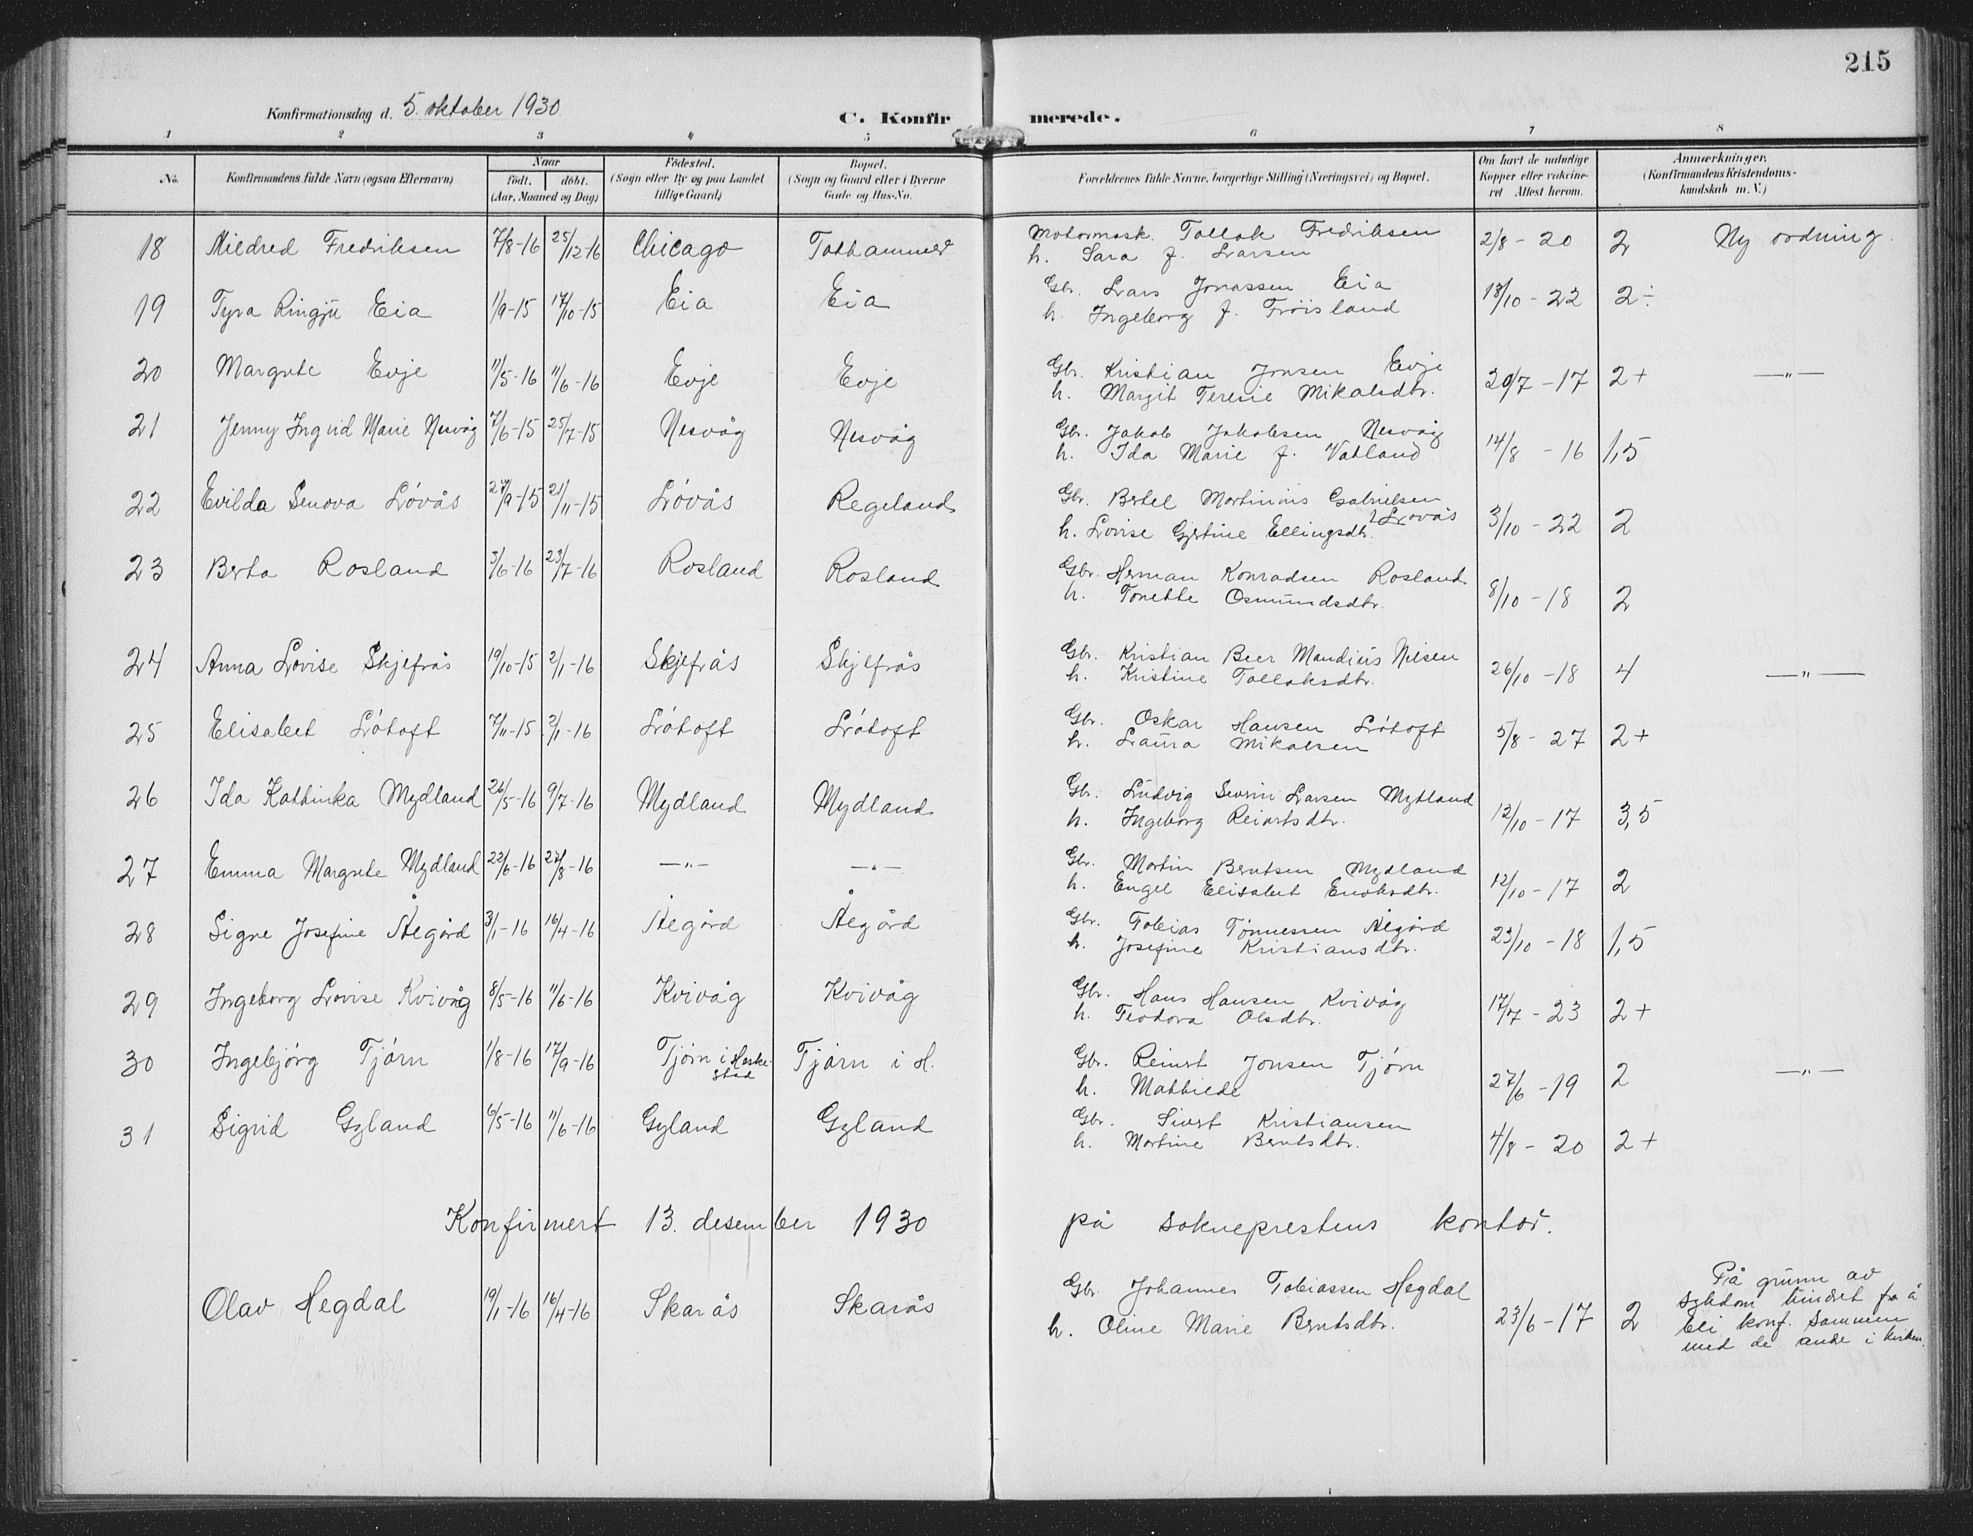 215
Konfirmationsdag d. 5. oktober 1930 C. Konfirmerede.
1 2 3 4 5 6 7 8
No. Konfirmandens fulde Navn (ogsaa Efternavn) Naar født. døbt. (Aar, Maaned og Dag) Fødested. (Sogn eller By og paa Landet tillige Gaard) Bopæl. (Sogn og Gaard eller i Byerne Gade og Hus-No. Forældrenes fulde Navne, borgerlige Stilling (Næringsvei) og Bopæl. Om havt de naturlige Kopper eller vaccineret Attest herom. Anmærkninger. (Konfirmandens Kristendomskundskab m. V.)
18 Mildred Fredriksen 7/8-16 25/12-16 Chicago Tothammer Motormask. Tollak Fredriksen 2/8-20 2 Ny ordning.
h. Sara f. Larsen
19 Tyra Ringju Eia 1/9-15 17/10-15 Eia Eia Gbr. Lars Jonassen Eia 18/10-22 2÷
h. Ingeborg f. Frøisland
20 Margrete Evje 11/5-16 11/6-16 Evje Evje Gbr. Kristian Jonsen Evje 20/7-17 2+ —"—
h. Margit Teresie Mikalsdtr.
21 Jenny Ingrid Marie Nesvåg 7/6-15 25/7-15 Nesvåg Nesvåg Gbr. Jakob Jakobsen Nesvåg 14/8-16 1,5
h. Ida Marie f. Vatland
22 Evilda Senova Løvås 27/9-15 21/11-15 Løvås Regeland Gbr. Bertel Martinius Gabrielsen Løvås 3/10-22 2
h. Lovise Gjertine Ellingsdtr.
23 Berta Rosland 3/6-16 23/7-16 Rosland Rosland Gbr. Herman Konradsen Rosland 8/10-18 2
h. Tonette Osmundsdtr.
24 Anna Lovise Skjefrås 19/10-15 2/1-16 Skjefrås Skjefrås Gbr. Kristian Beer Mandius Nilsen 26/10-18 4 —"—
h. Kristine Tollaksdtr.
25 Elisabet Løtoft 7/11-15 2/1-16 Løtoft Løtoft Gbr. Oskar Hansen Løtoft 5/8-27 2+
h. Laura Mikalsen
26 Ida Kathinka Mydland 26/5-16 9/7-16 Mydland Mydland Gbr. Ludvig Severin Larsen Mydland 12/10-17 3,5
h. Ingeborg Reiertsdtr.
27 Emma Margrete Mydland 22/6-16 27/8-16 —"— —"— Gbr. Martin Berntsen Mydland 12/10-17 2
h. Engel Elisabet Enoksdtr.
28 Signe Josefine Åegård 3/1-16 16/4-16 Åegård Åegård Gbr. Tobias Tønnessen Åegård 23/10-18 1,5
h. Josefine Kristiansdtr.
29 Ingeborg Lovise Kvivåg 8/5-16 11/6-16 Kvivåg Kvivåg Gbr. Hans Hansen Kvivåg 17/7-23 2+
h. Teodora Olsdtr.
30 Ingebjørg Tjørn 1/8-16 17/9-16 Tjørn i Heskestad Tjørn i H. Gbr. Reinert Jonsen Tjørn 27/6-19 2 —"—
h. Mathilde
31 Sigrid Gyland 6/5-16 11/6-16 Gyland Gyland Gbr. Sivert Kristiansen 4/8-20 2+
h. Martine Berntsdtr.
Konfirmert 13. desember 1930 på sokneprestens kontor.
Olav Hegdal 19/1-16 16/4-16 Skarås Skarås Gbr. Johannes Tobiassen Hegdal 23/6-17 2 På grunn av
h. Oline Marie Berntsdtr. sykdom hindret fra å
bli konf. sammen
med de andre i kirken.